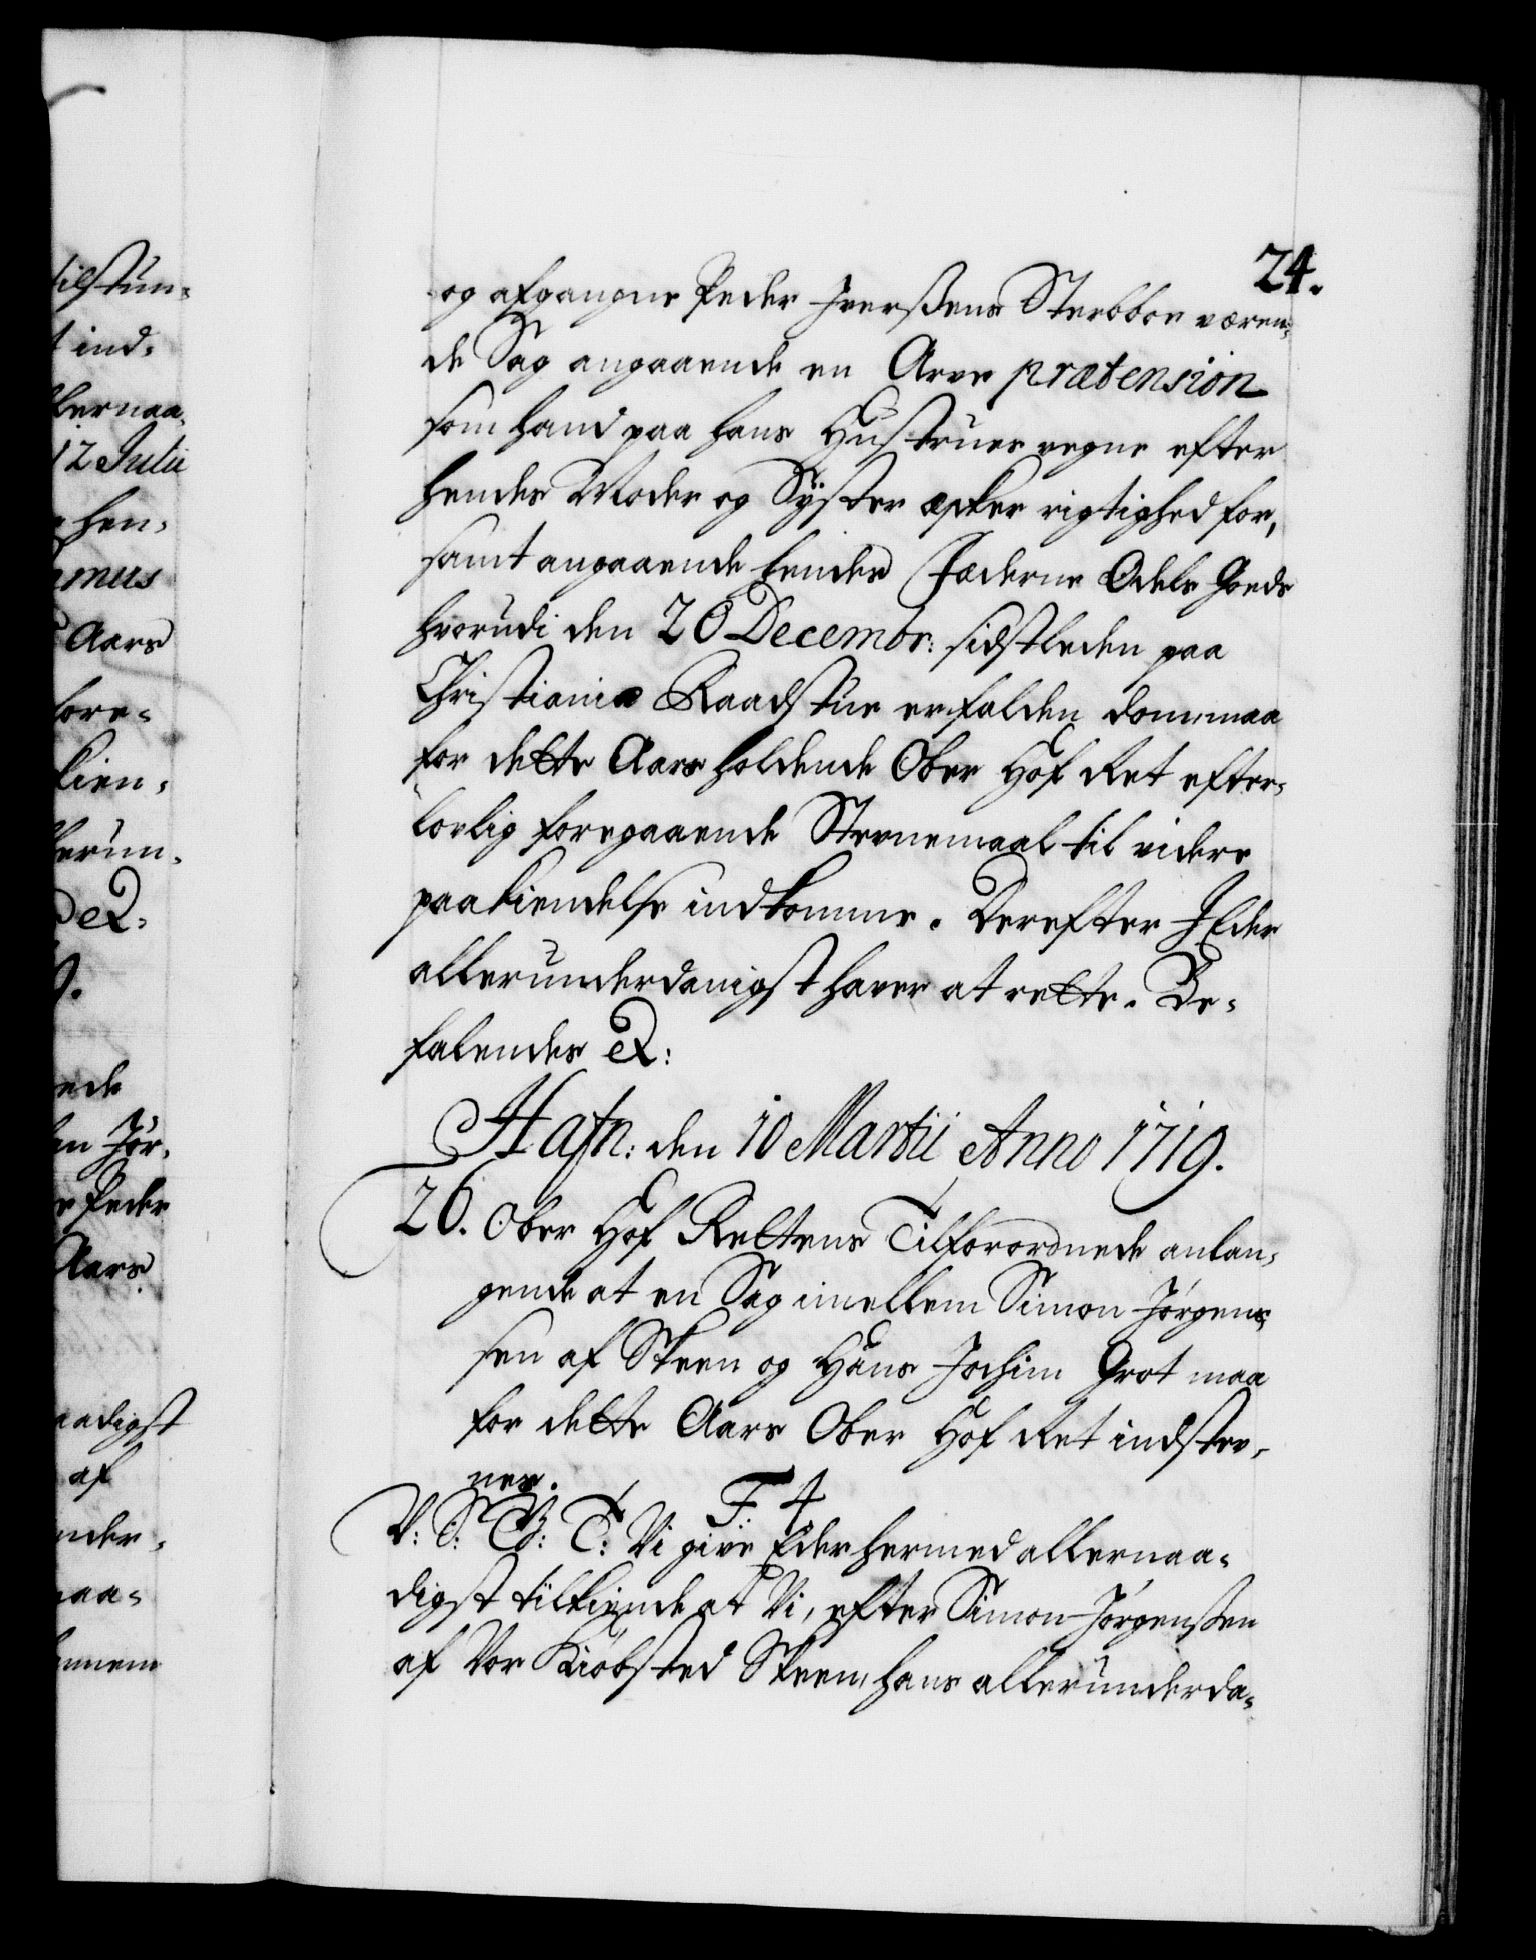 24.
og afgangne Peder Iverßens Sterbboe væren¬
de Sag angaaende en Arve prætension
som hand paa hans Hustrues vegne efter
hendes Moder og Syster æsker rigtighed for,
samt angaaende hendes Fæderne Odels Goeds
hvorudi den 20 Decembr: sidstleden paa
Christiania Raadstue er falden dom, maa
for dette Aars holdende Ober Hof Ret efter
lovlig foregaaende Stevnemaal til videre
paakiendelse indkomme. Derefter I Eder
allerunderdanigst haver at rette. Be¬
falendes &:
Hafn: den 10 Martii Anno 1719.
26. Ober Hof Rettens Tilforordnede anlan¬
gende at en Sag imellem Simon Jørgen¬
sen af Skeen og Hans Jochim Grot maa
for dette Aars Ober Hof Ret indstev¬
nes.
F. 4
V: S: G: T: Vi give Eder hermed allernaa¬
digst tilkiende at Vi, efter Simon Jørgenßen
af Vor Kiøbsted Skeen, hans allerunderda¬